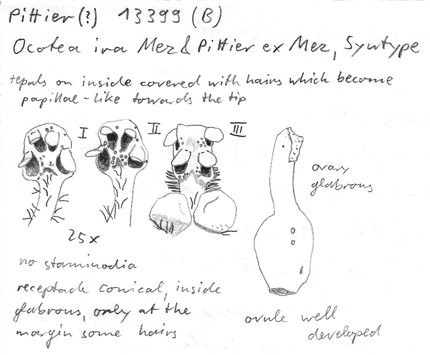 Pittier(?) 13399 (B)
Ocotea ira Mez & Pittier ex Mez, Syntype
tepals on inside covered with hairs which become
papillae-like towards the tip
I II III
ovary
glabrous
25x
no staminodia
receptacle conical, inside
glabrous, only at the
margin some hairs
ovule well
developed